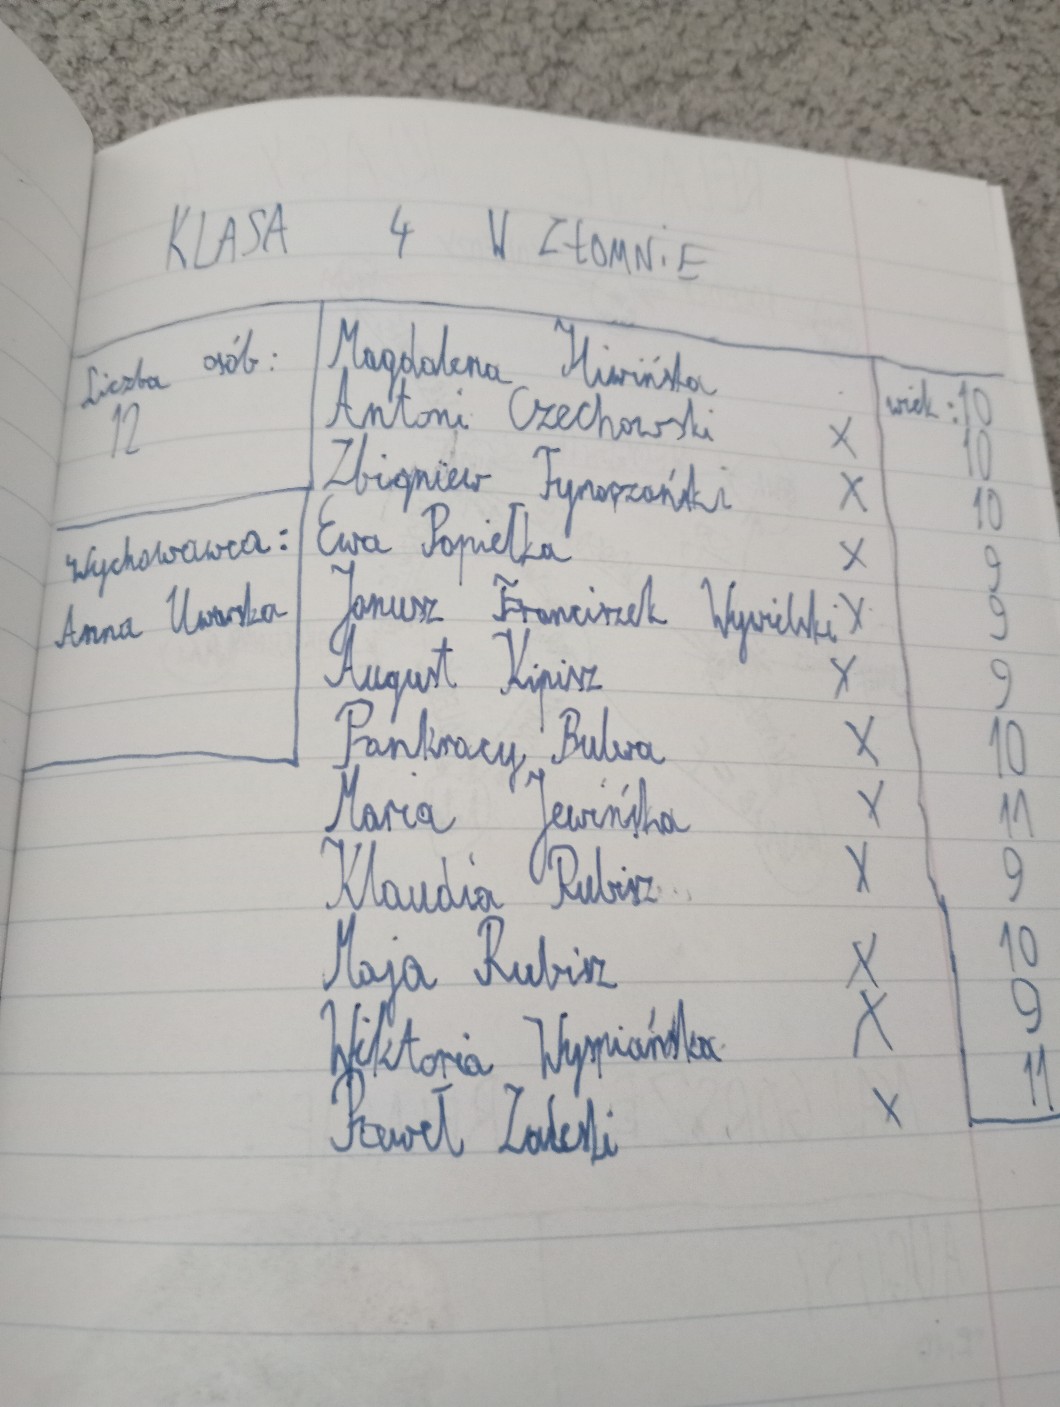 KLASA 4 W ZŁOMNiE
Liczba osób:
12
Wychowawca:
Anna Uwarska
Magdalena
Antoni Czechowski X
Zbigniew X
Ewa Popiełka X
Janusz Franciszek Wywielski X
August Kipisz X
Pankracy Bulwa X
Maria Jewińska X
Klaudia Rubisz X
Maja Rubisz X
Wiktoria Wyspiańska X
Paweł Zaleski X
wiek: 10
10
10
9
9
9
10
11
9
10
9
11